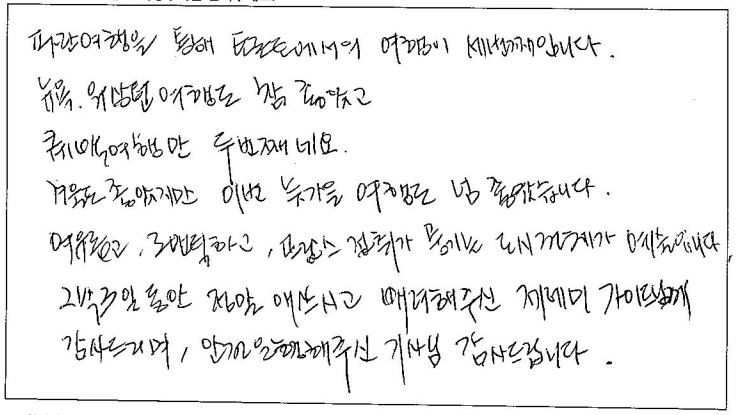 파란여행을 통해 토론토에서의 여행이 세번째입니다.
뉴욕.워싱턴여행도 참 좋았고
퀘백여행만 두번째네요.
겨울도 좋았지만 이번 늦가을 여행도 넘 좋았습니다.
여유롭고, 로맨틱하고, 프랑스 정취가 풍기는 도시전체가 예술입니다
2박3일동안 정말 애쓰시고 배려해주신 제레미 가이드님께
감사드리며, 안전운행해주신 기사님 감사드립니다.